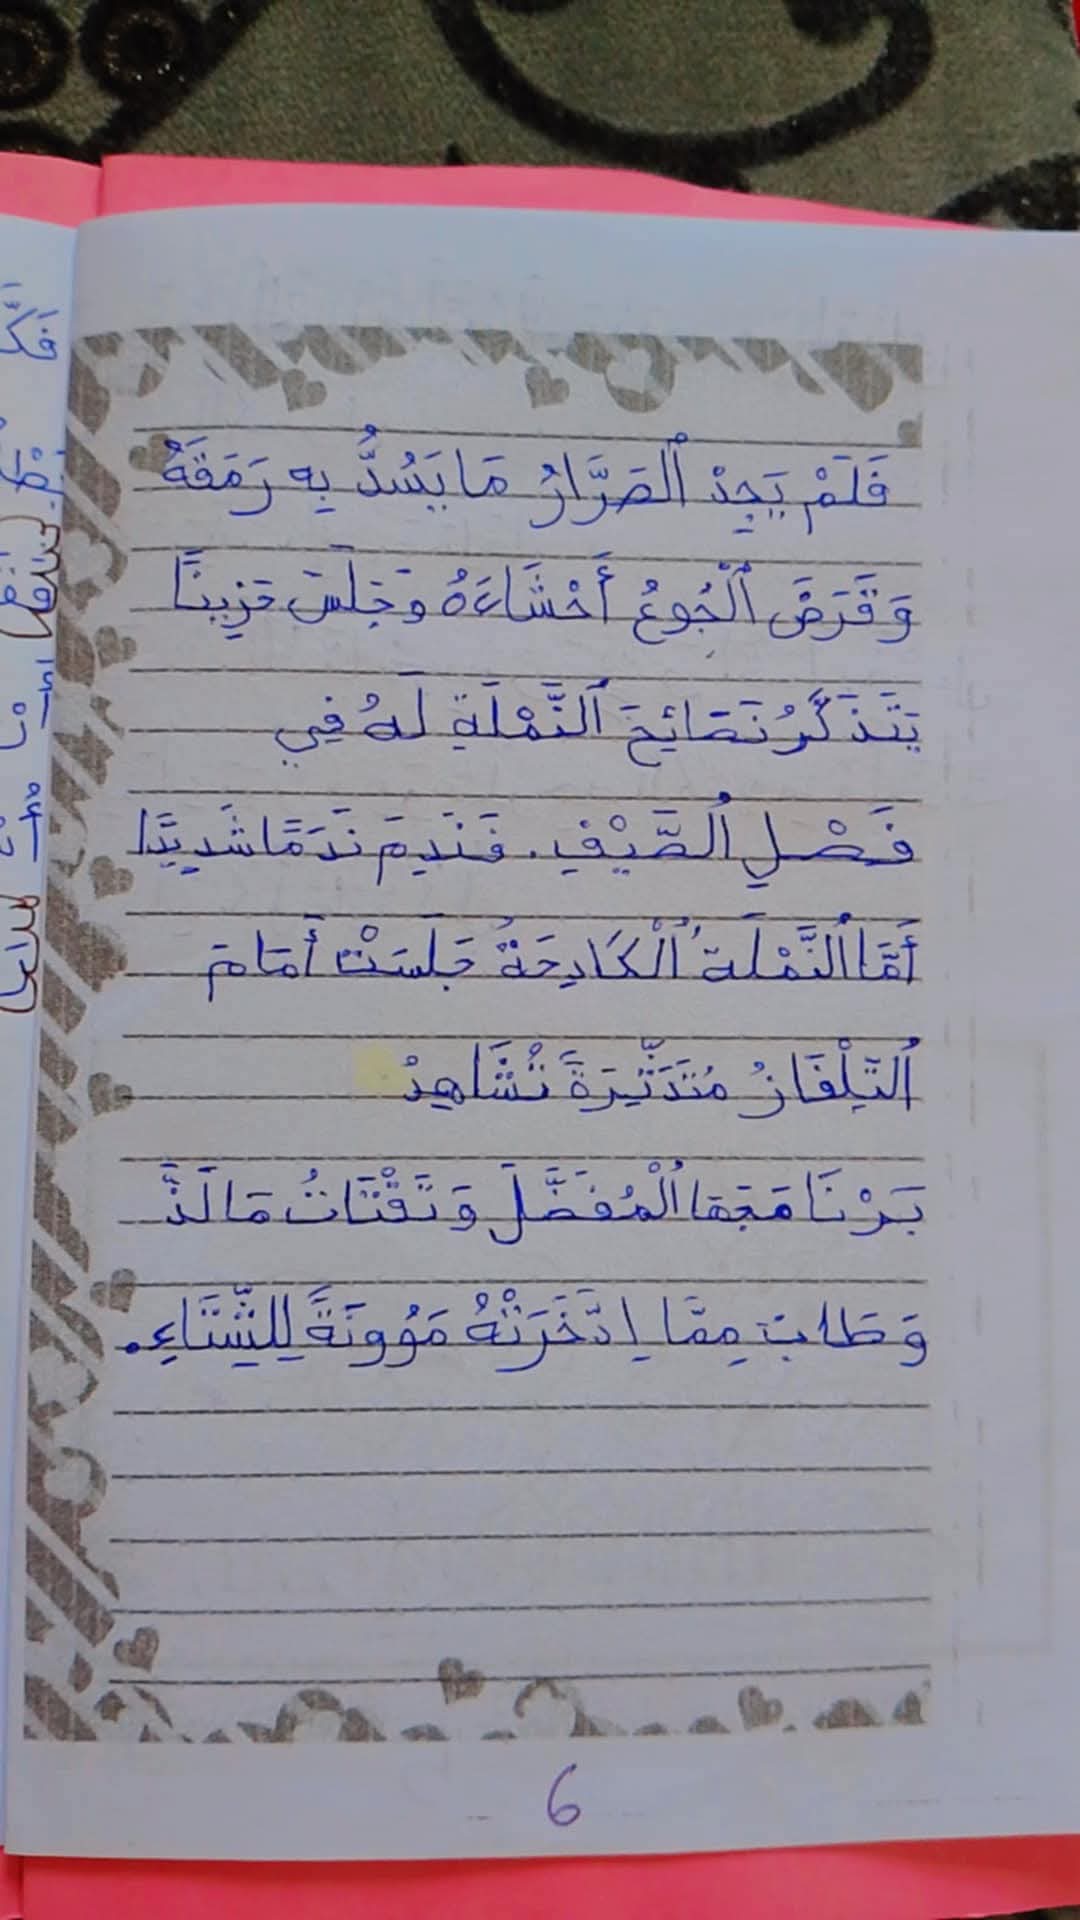 فَلَمْ يَجِدْ ٱلصَرَّارُ مَا يَسُدُّ بِهِ رَمَقَهُ
وَقَرَصَ ٱلْجُوعُ أَحْشَاءَهُ وَجَلَسَ حَزِينًا
يَتَذَكَّرُ نَصَائِحَ ٱلنَّمْلَةِ لَهُ فِي
فَصْلِ ٱلصَّيْفِ. فَنَدِمَ نَدَمًا شَدِيدًا
أَمَّا ٱلنَّمْلَةُ ٱلْكَادِحَةُ جَلَسَتْ أَمَامَ
ٱلتِلْفَازُ مُتَدَثِّرَةً تُشَاهِدُ
بَرْنَامَجَهَا ٱلْمُفَضَّلَ وَتَقْتَاتُ مَا لَذَّ
وَطَابَ مِمَّا اِدَّخَرَتْهُ مَؤُونَةً لِلشِّتَاءِ.
6